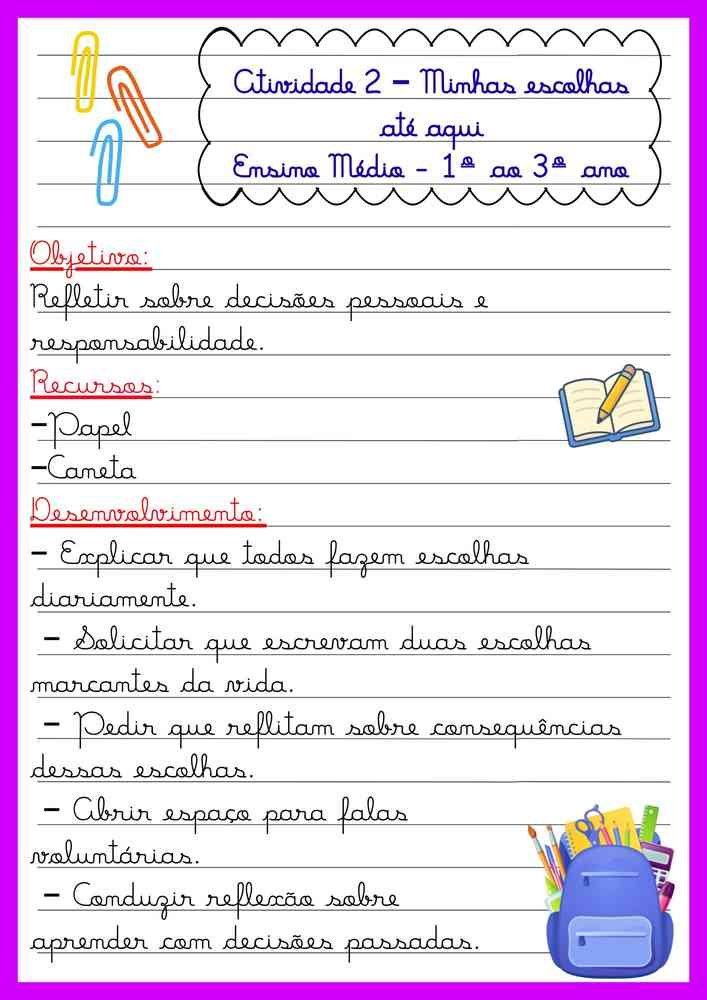 Atividade 2 – Minhas escolhas
até aqui
Ensino Médio - 1º ao 3º ano
Objetivo:
Refletir sobre decisões pessoais e
responsabilidade.
Recursos:
-Papel
-Caneta
Desenvolvimento:
- Explicar que todos fazem escolhas
diariamente.
- Solicitar que escrevam duas escolhas
marcantes da vida.
- Pedir que reflitam sobre consequências
dessas escolhas.
- Abrir espaço para falas
voluntárias.
- Conduzir reflexão sobre
aprender com decisões passadas.